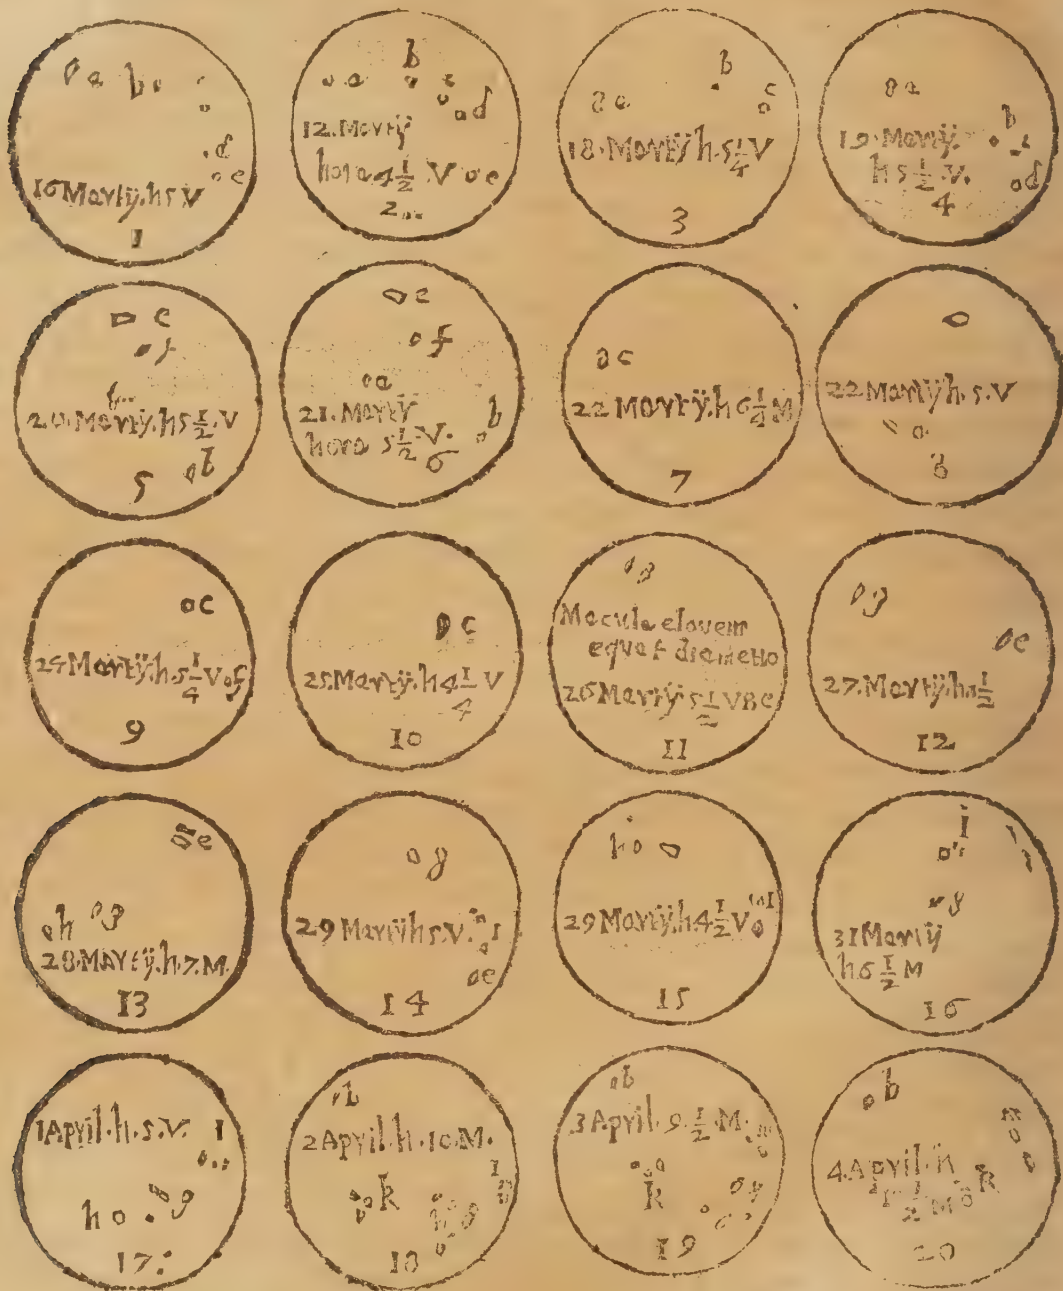 a b
c
d
e
16 Martÿ. h 5 V
1
a b c
d
12. Martÿ
hora 4 1/2 V e
2
b
a c
18. Martÿ h. 5 1/4 V
3
a
b
19. Martÿ.
h 5 1/2. V. d
4
e
f
20. Martÿ. h 5 1/2. V
b
5
e
f
a
21. Martÿ
hora 5 1/2. V. b
6
c
22 Martÿ. h 6 1/2 M
7
22 Martÿ h. 5. V
a
8
c
24 Martÿ. h. 5 1/4 V f
9
c
25. Martÿ. h 4 1/4 V
10
g
Macula e Iovem
equat diametro
26 Martÿ 5 1/2 V B C
11
g
e
27. Martÿ. h
12
e
h g
28. Martÿ. h. 7. M.
13
g
29 Martÿ h 5. V. I
e
14
h
29 Martÿ. h 4 1/2 V I
15
I
g
31 Martÿ
h 6 1/2 M
16
1 April. h. 5. V. I
g
h
17.
b
2 April. h. 10. M.
I
k m
g
18
b
3 April. 9. 1/2. M. m
k g
19
b
m
4. April. h k
1/2 M
20